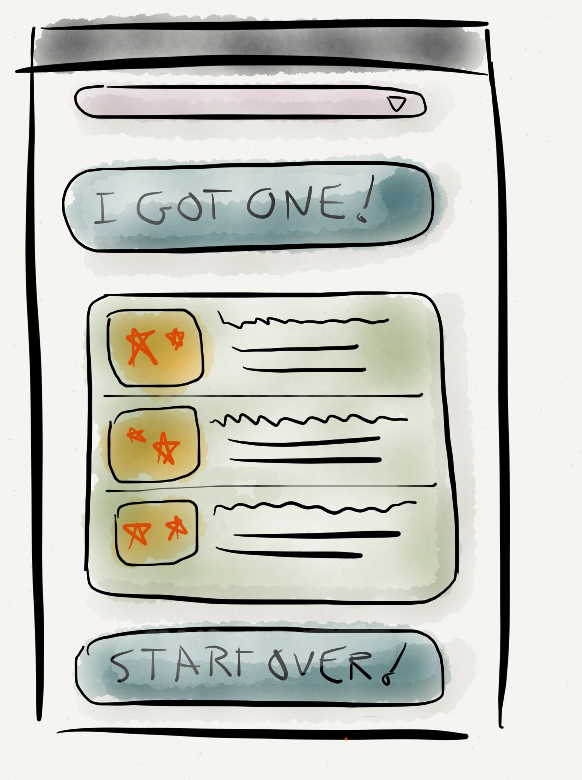 I GOT ONE!
START OVER!